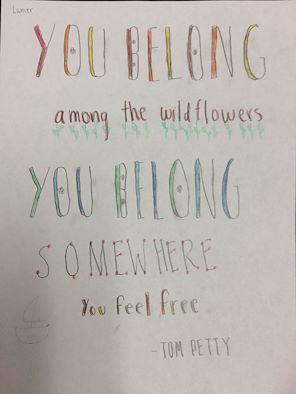 Lanier
YOU BELONG
among the wildflowers
YOU BELONG
SOMEWHERE
You feel free
-TOM PETTY